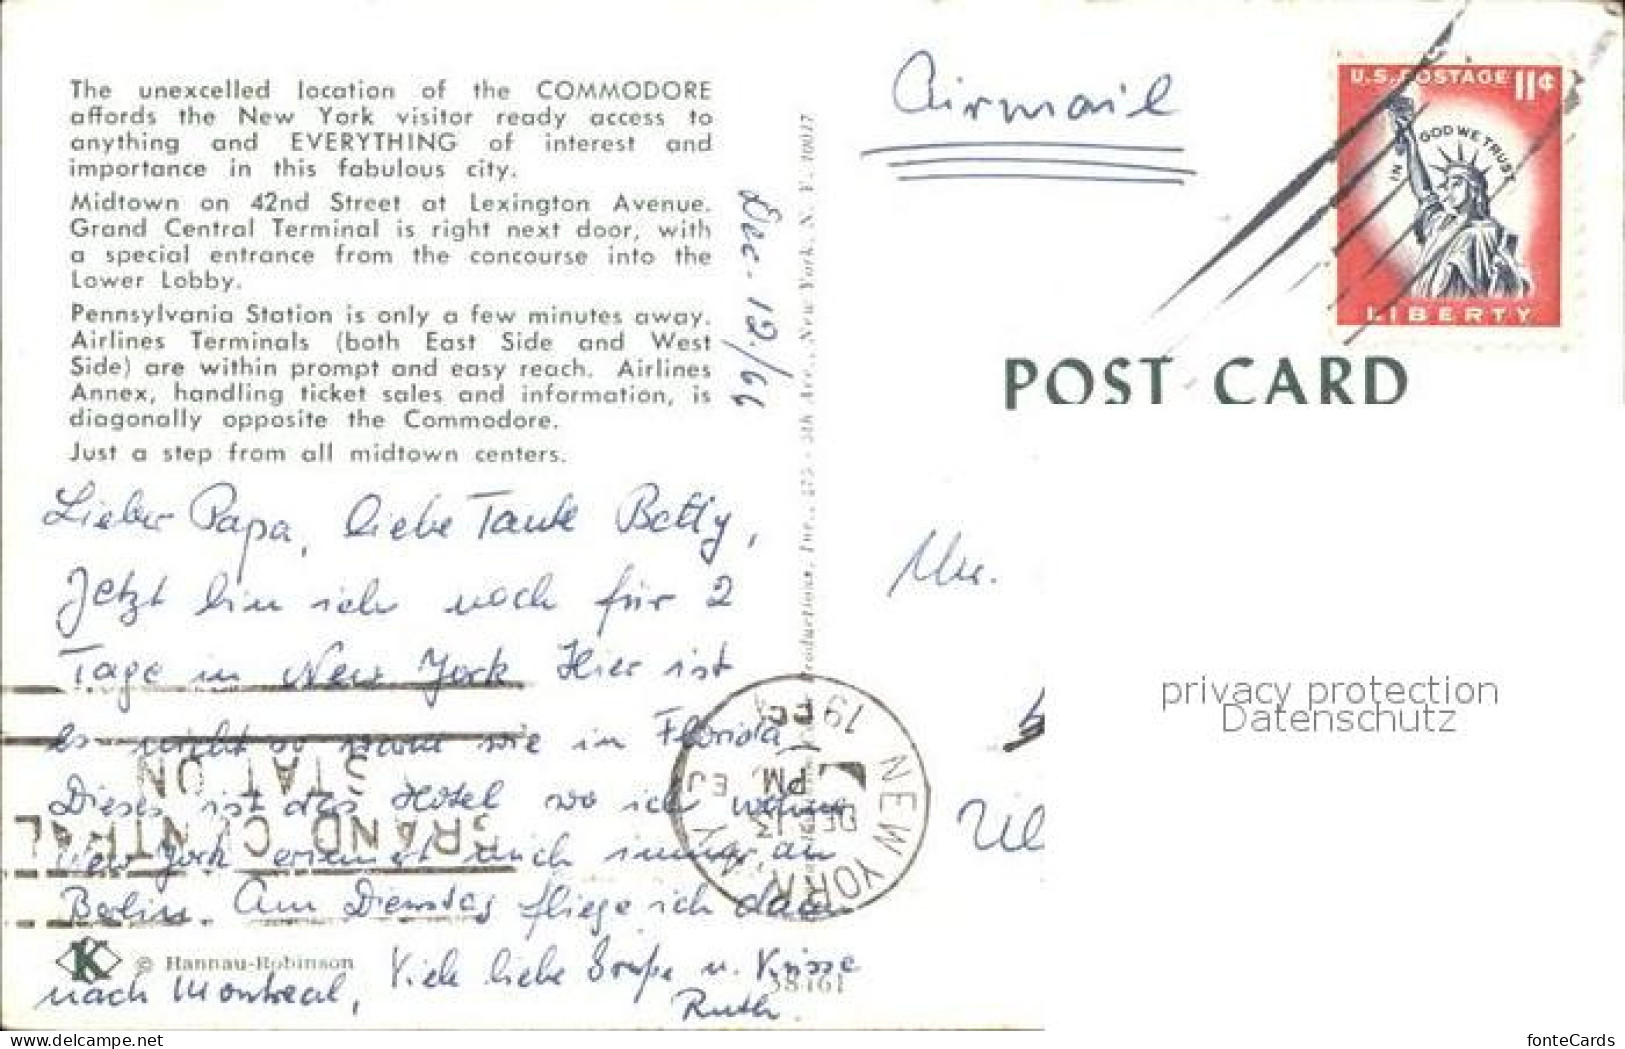 The unexcelled location of the COMMODORE
affords the New York visitor ready access to
anything and EVERYTHING of interest and
importance in this fabulous city.
Midtown on 42nd Street at Lexington Avenue.
Grand Central Terminal is right next door, with
a special entrance from the concourse into the
Lower Lobby.
Pennsylvania Station is only a few minutes away.
Airlines Terminals (both East Side and West
Side) are within prompt and easy reach. Airlines
Annex, handling ticket sales and information, is
diagonally opposite the Commodore.
Just a step from all midtown centers.
Lieber Papa, liebe Tante Betty,
Jetzt bin ich noch für 2
Tage in New York Hier ist
es nicht so warm wie in Florida
Dieses ist das Hotel wo ich wohne
New York erinnert mich immer an
Berlin. Am Dienstag fliege ich dann
nach Montreal, Viele liebe Grüße u. Küsse
Ruth.
K © Hannau-Robinson
38461
Dec. 12./66
Productions, Inc., 475 - 5th Ave., New York, N. Y. 10017
Airmail
U.S. POSTAGE 11¢
IN GOD WE TRUST
LIBERTY
POST CARD
NEW YORK, N.Y.
PM
DEC 13
19
GRAND CENTRAL
STATION
privacy protection
Datenschutz
www.delcampe.net
fonteCards